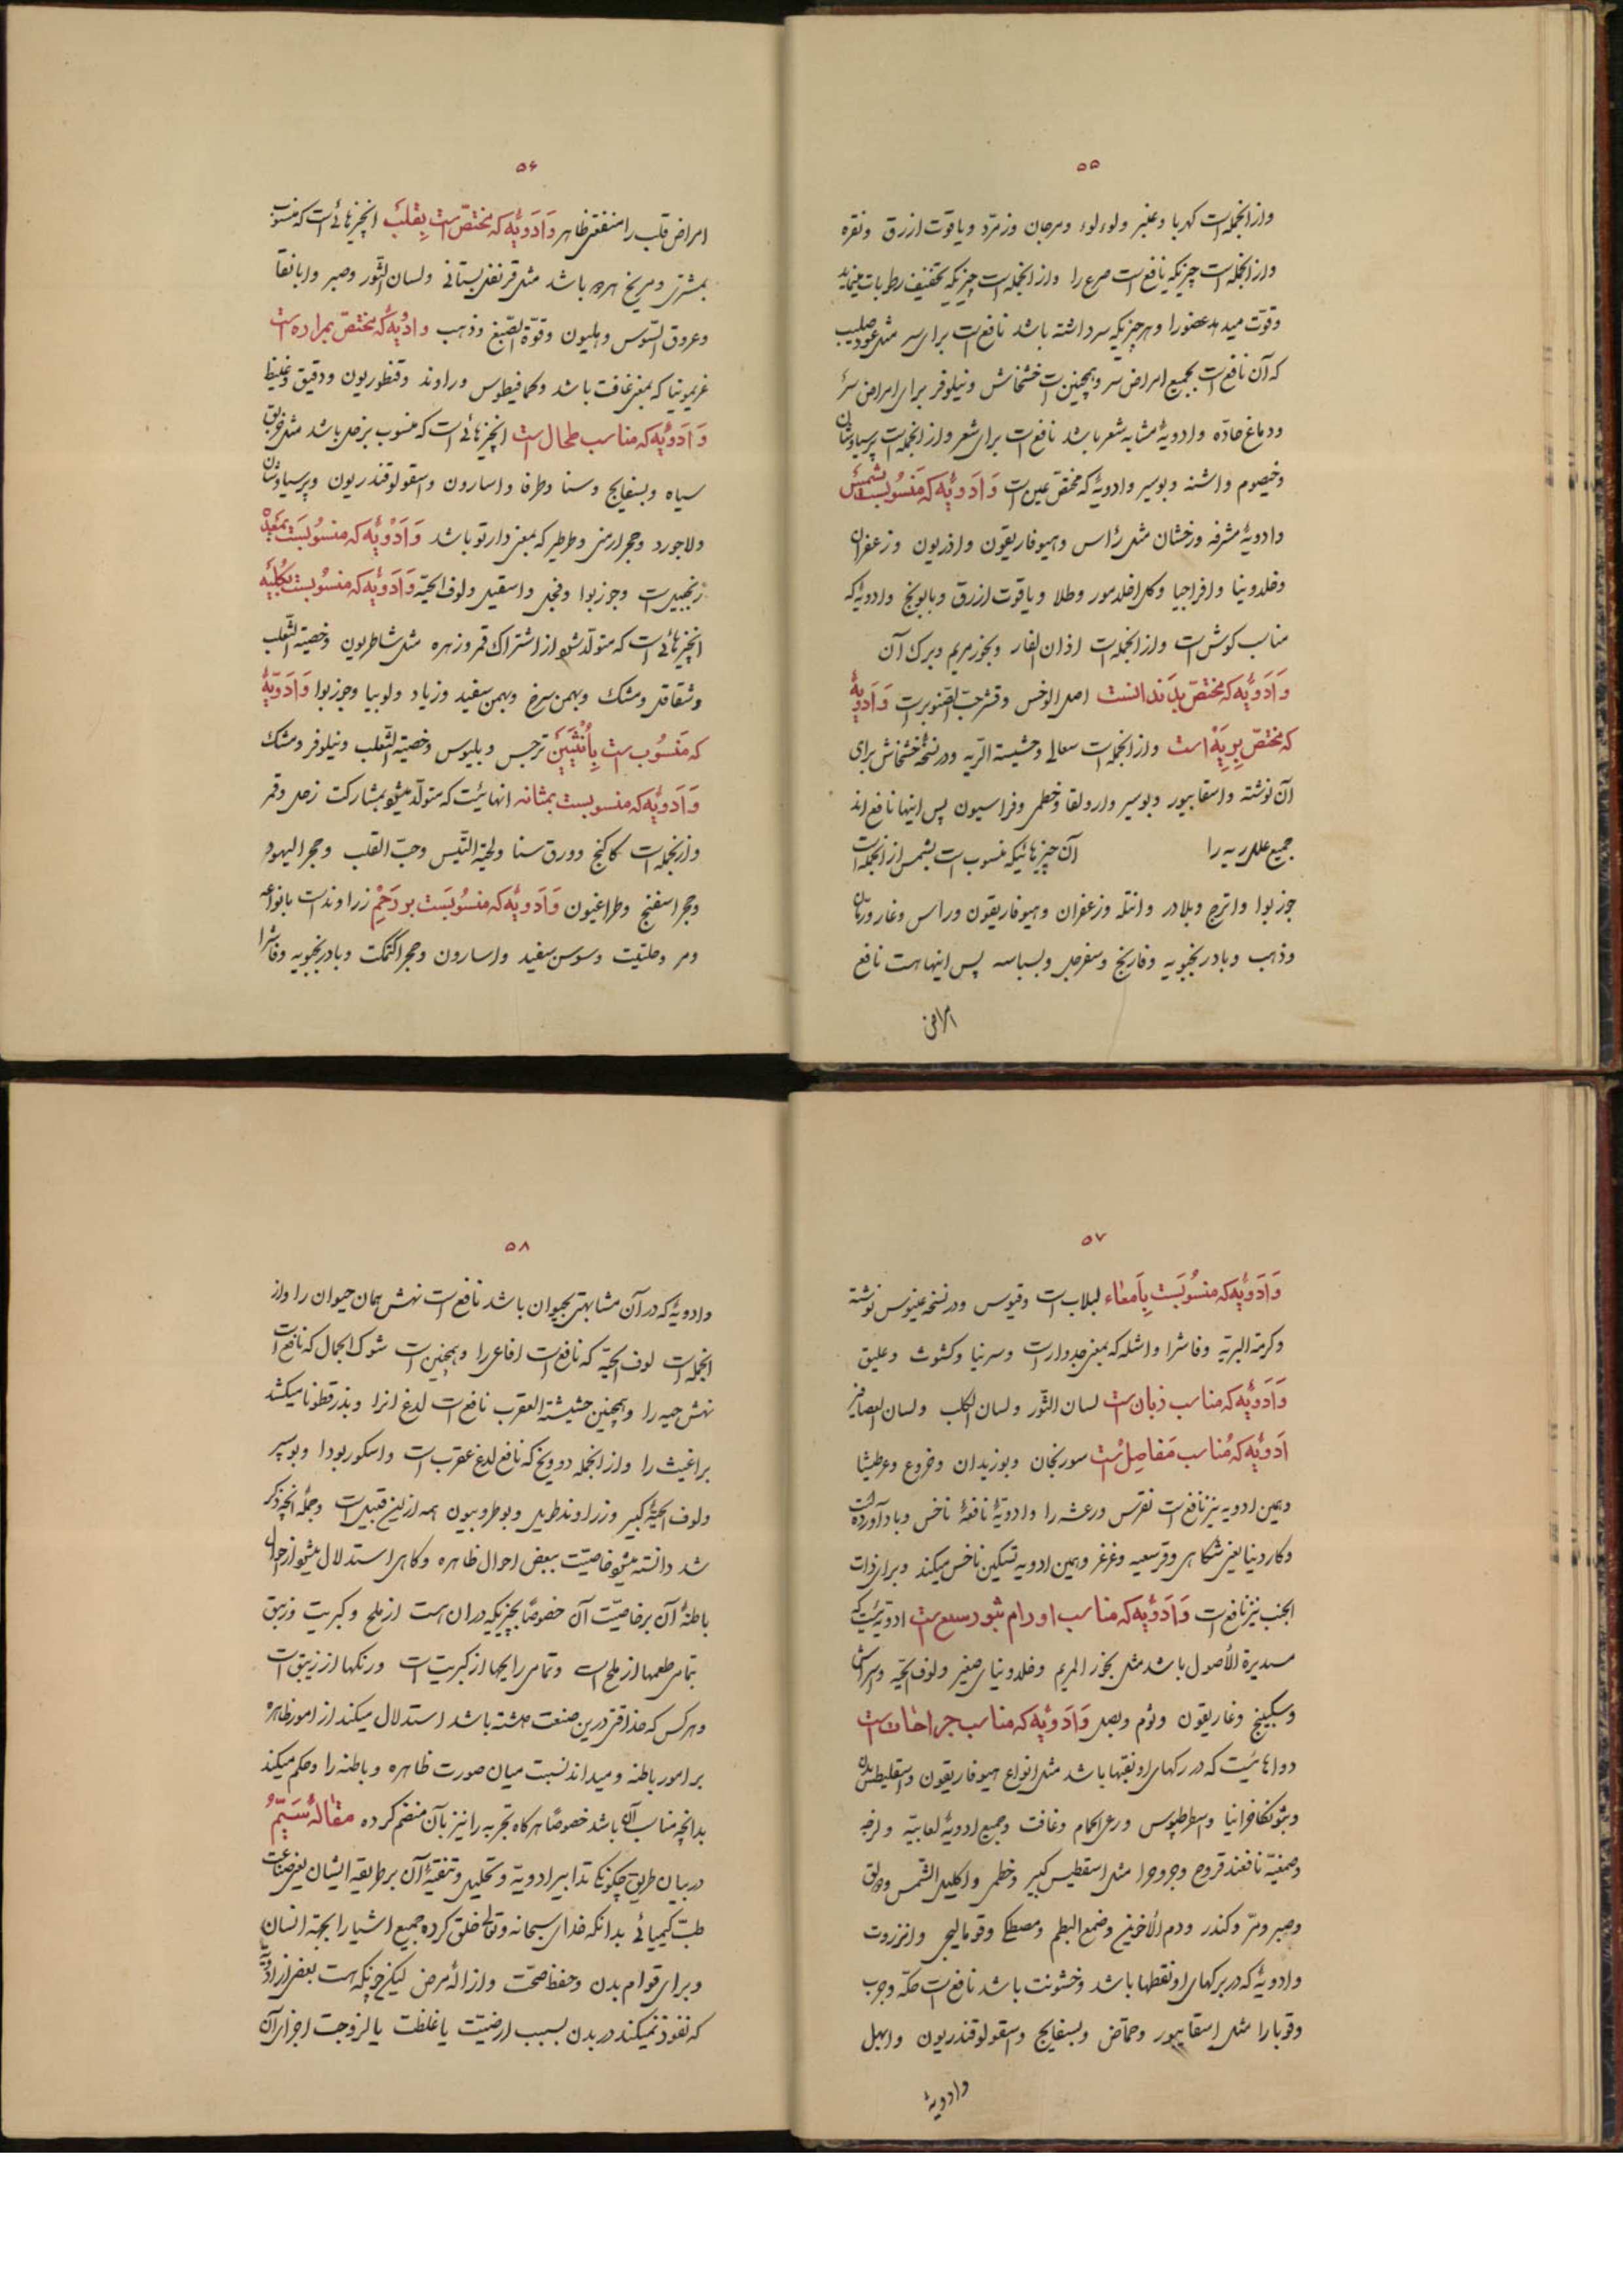 ۵۵
وازانجمله است کهربا وعنبر ولوءلوء ومرجان وزمرّد ویاقوت ازرق ونقره
وازانجمله است چیزیکه نافع است صرع را وازانجمله است چیزیکه تخفیف رطوبات مینماید
وقوّت میدهد عضورا وهرچیزیکه سرداشته باشد نافع است برای سر مثل عود صلیب
که آن نافع است بجمیع امراض سر وهمچنین است خشخاش ونیلوفر برای امراض سر
ودماغ حادّه وادویهٔ مشابه شعر باشد نافع است برای شعر وازانجمله است پرسیاوشان
وخیصوم واشنه وبوسیر وادویهٔ که مختص عین است وَاَدَویهٔ که مَنسُوبست بشمس
وادویهٔ مشرقه وزخشان مثل رأس وهیوفاریقون واذریون وزعفران
وخلدونیا وافراجیا وکل اخلدمور وطلا ویاقوت ازرق وبابونج وادویهٔ که
مناسب کوش است وازانجمله است اذان الفار وبخورمریم وبرک آن
وَاَدَویّه که مختصّ بدَندانست اصل الوخس وقشر حبّ الصّنوبر است وَاَدَویهٔ
که مختصّ بِرِیَهْ است وازانجمله است سعالی وحشیشة الرّیه ودرنسخهٔ خشخاش برای
آن نوشته واسقابیور وبوسیر وارولقا وخطمی وفراسیون پس اینها نافع اند
جمیع علل ریه را آن چیزهائیکه منسوب است بشمس ازانجمله است
جوزبوا واترج وبلادر وانتله وزعفران وهیوفاریقون وراس وغار ورمان
وذهب وبادرنجبویه وفارنج وسفرجل وبسباسه پس اینهاست نافع
امراض
۵۶
امراض قلب را منفعتی ظاهر وَاَدَویّه که مختصّ است بِقلبْ انچیزهائی است که منسوب
بمشتری ومریخ هردو باشد مثل قرنفل بستانی ولسان الثّور وصبر وابانقا
وعروق السّوس وهلیون وقوّة الصّبغ وذهب وادُویه که مختصّ بمراره است
غریمونیا که بمعنی غافت باشد وکمافیطوس وراوند وقنطوریون ودقیق وغلیظ
وَاَدَویه که مناسب طحال است انچیزهائی است که منسوب بزحل باشد مثل خربق
سیاه وبسفایج وسنا وطرفا واسارون واسقولوقندریون وپرسیاوشان
ولاجورد وحجرارمنی وطرطیر که بمعنی دارتو باشد وَاَدْویه که منسُوبَست بمَعِدَه
زنجبیل است وجوزبوا وفجل واسقیل ولوف الحیّة وَاَدَویه که منسوبست بکُلْیَه
انچیزهائی است که متولّد شود از اشتراک قمر وزهره مثل شاطریون وخصیة الثّعلب
وشقاقل ومشک وبهمن سرخ وبهمن سفید وزیاد ولوبیا وجوزبوا وَاَدَویّهٔ
که مَنسُوب ست بِاُنْثَیَینْ نرجس وبلبوس وخصیة الثّعلب ونیلوفر ومشک
وَاَدَویّه که منسوبست بمثانه انهائیست که متولّد میشود بمشارکت زحل وقمر
وازانجمله است کاکنج وورق سنا ولحیة التّیس وحبّ القلب وحجر الیهود
وحجر اسفنج وطراغیون وَاَدَویه که منسُوبَست بودَحَمِْ زراوند است بانواعه
ومر وحلتیت وسوسن سفید واسارون وحجر اکتمکت وبادرنجبویه وفاشرا
۵۷
وَاَدَویّه که منسُوبَست بِاَمعاء لبلاب است وقیوس ودرنسخه عینوس نوشته
وکرمة البریّه وفاشرا واشله که بمعنی جدوار است وسرنیا وکشوث وعلیق
وَاَدَویّه که مناسب زبان ست لسان الثّور ولسان الکلب ولسان العصافیر
اَدَویّه که مُناسب مَفاصِل ست سورنجان وبوزیدان وخروع وعرطنیثا
وهمین ادویه نیز نافع است نقرس ورعشه را وادویّهٔ نافعهٔ ناخس وبادآورد است
وکاردینا یعنی شکاهی وقرسعیه وغزغز وهمین ادویه تسکین ناخس میکند وبرای ذات
الجنب نیز نافع است وَاَدَویّه که مناسب اورام بثور سبع ست ادویّه ئیست که
مستدیرة الأصول باشد مثل بخور المریم وخلدونیای صغیر ولوف الحیّه وسراش
وسکبینج وغاریقون وثوم وبصل وَاَدَویّه که مناسب جراحٰات است
دواهائیست که دررکهای او نقبها باشد مثل انواع هیوفاریقون واسقلیطس بدان
وبثونکافرانیا واسطرطپوس ورعی الحمام وغافت وجمیع ادویهٔ لعابیّه ولزجه
وصمغیّه نافعند قروح وجروحرا مثل اسقطیس کبیر وخطمی واکلیل الشّمس ودبق
وصبر ومرّ وکندر ودم الأخوین وضمغ البطم ومصطکی وقومالیجی وانزروت
وادویهٔ که دربرکهای او نقطها باشد وخشونت باشد نافع است حکّه وجرب
وقوبارا مثل اسقابیور وحمّاض وبسفایج واسقولوقندریون وابهل
وادویهٔ
۵۸
وادویهٔ که در آن مشابهتی بحیوان باشد نافع است نهش همان حیوان را واز
انجمله است لوف الحیّه که نافع است افاعی را وهمچنین است شوک الجمال که نافع است
نهش حیه را وهمچنین حشیشة العقرب نافع است لدغ انرا وبذرقطونا میکشد
براغیث را وازانجمله درونج که نافع لدغ عقرب است واسکوربودا وبوسیر
ولوف الحیّهٔ کبیر وزراوند طویل وبوطروبیون همه ازین قبیل است وجملهٔ انچه ذکر
شد دانسته میشود خاصیّت ببعض احوال ظاهره وکاهی استدلال میشود از احوال
باطنهٔ آن برخاصیّت آن خصوصًا بچیزیکه دران است از ملح وکبریت وزیبق
بتمامی طعمها از ملح است وتمامی رایحها از کبریت است ورنکها از زیبق است
وهرکس که حذاقتی درین صنعت داشته باشد استدلال میکند از امور ظاهره
برامور باطنه ومیداند نسبت میان صورت ظاهره وباطنه را وحکم میکند
بدانچه مناسب آن باشد خصوصًا هرکاه تجربه را نیز بآن منضم کرده مقالهٔ سَیّمُ
دربیان طریق چکونکی تدابیر ادویّه وتحلیل وتنقیهٔ آن برطریقه ایشان یعنی صناعت
طبّ کیمیائی بدانکه خدای سبحانه وتعالی خلق کرده جمیع اشیا را بجهة انسان
وبرای قوام بدن وحفظ صحّت وازالهٔ مرض لیکن چونکه هست بعضی از ادویّه
که نفوذ نمیکند در بدن بسبب ارضیّت یا غلظت یا لزوجت اجزای آن